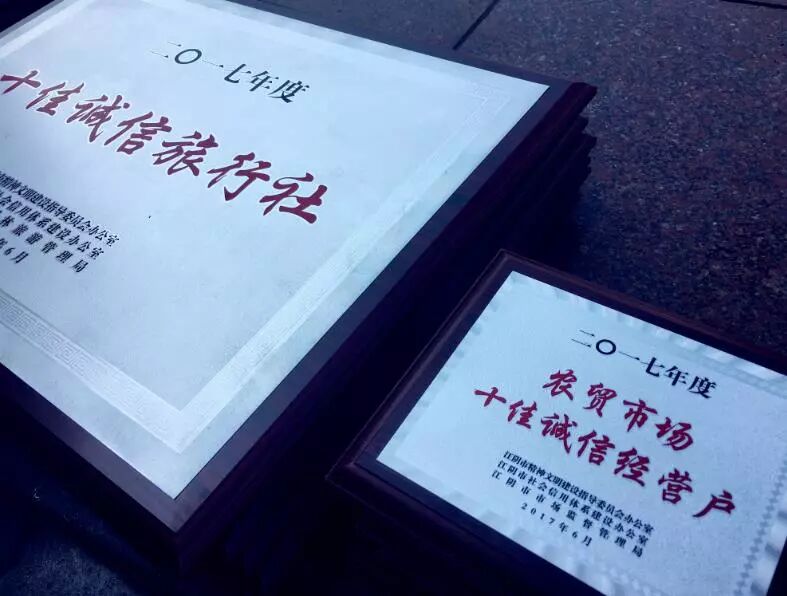 二〇一七年度
十佳诚信旅行社
精神文明建设指导委员会办公室
会信用体系建设办公室
林旅游管理局
年6月
二〇一七年度
农贸市场
十佳诚信经营户
江阴市精神文明建设指导委员会办公室
江阴市社会信用体系建设办公室
江阴市市场监督管理局
2017年6月